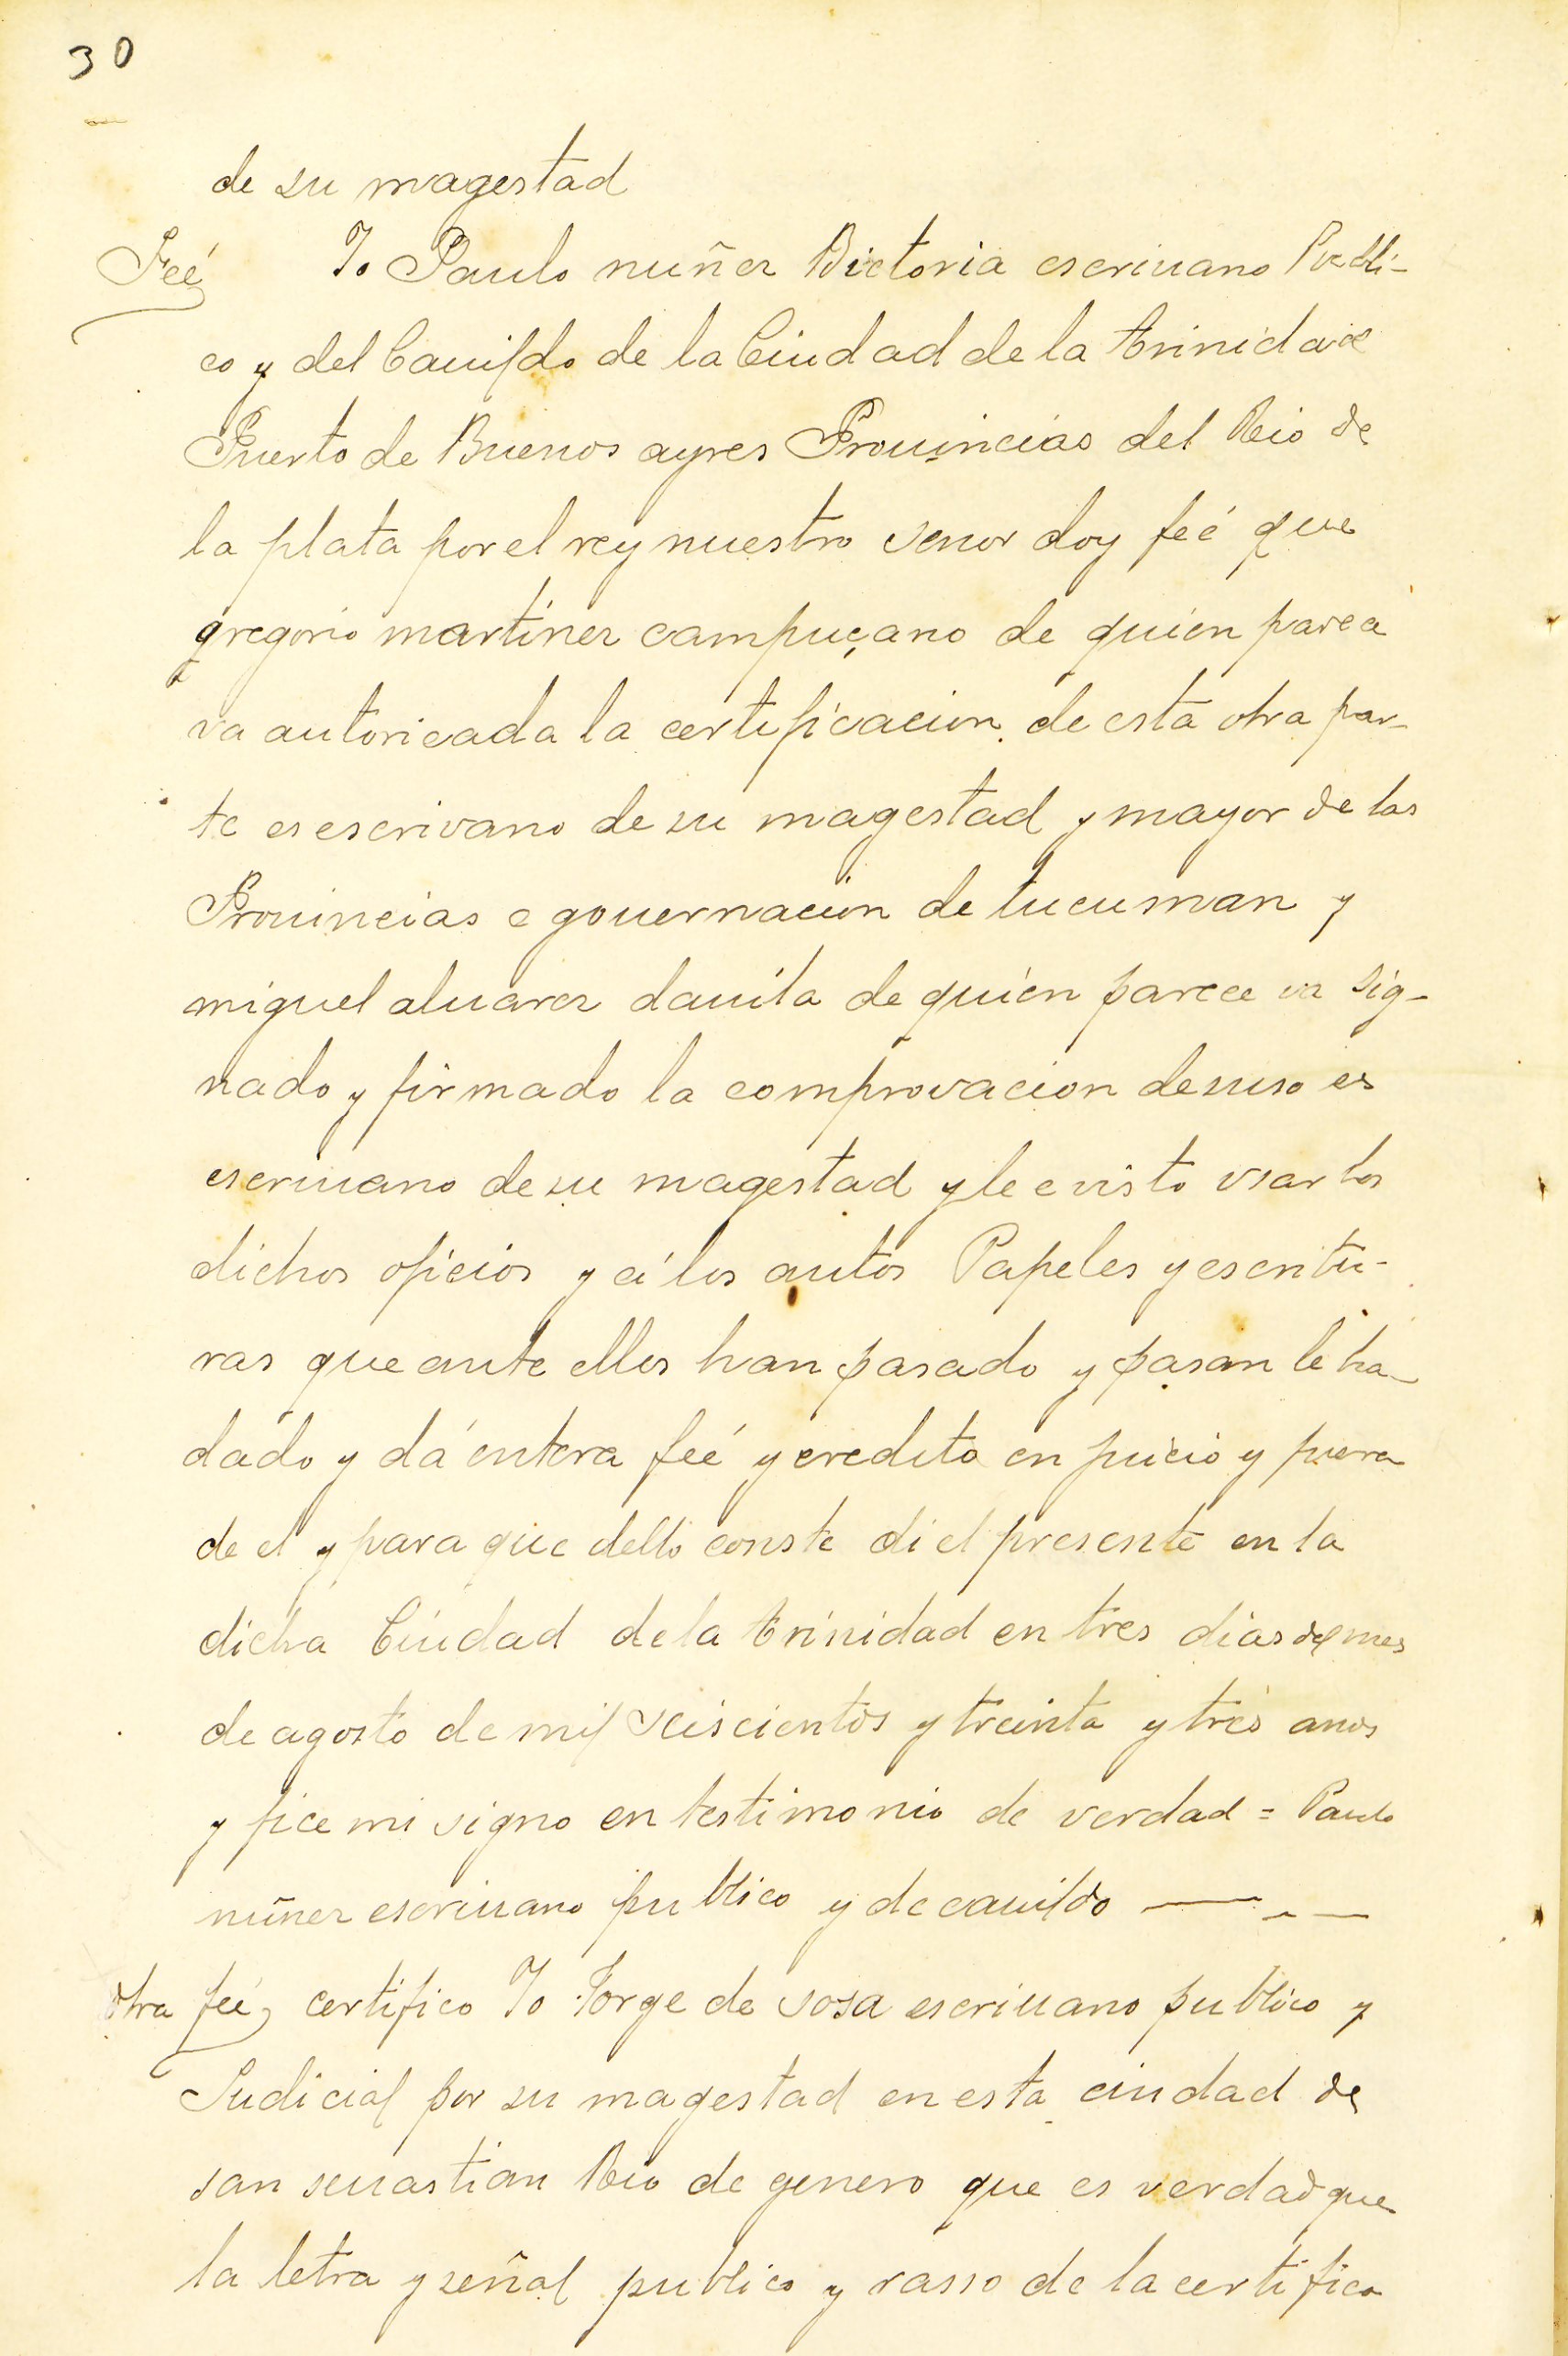 30
de su magestad
Feé Yo Paulo nuñez Bictoria escriuano Publi-
co y del Cauildo de la Ciudad de la trinidad
Puerto de Buenos ayres Prouincias del Rio de
la plata por el rey nuestro senor doy feé que
gregorio martinez campuçano de quien parea
va autoricada la certificacion de esta otra par-
te es escrivano de su magestad y mayor de las
Prouincias e gouernacion de tucuman y
miguel aluarez dauila de quien parece va sig-
nado y firmado la comprovacion desuso es
escriuano de su magestad y le e visto vsar los
dichos oficios y á los autos Papeles y escritu-
ras que ante ellos han pasado y pasan le ha-
dado y dá entera feé y credito en juicio y fuera
de el y para que dello conste di el presente en la
dicha Ciudad de la trinidad en tres dias del mes
de agosto de mil seiscientos y treinta y tres anos
y fice mi signo en testimonio de verdad = Paulo
nuñez escriuano publico y de cauildo
Otra feé certifico Yo Jorge de sosa escriuano publico y
Judicial por su magestad en esta ciudad de
san seuastian Rio de genero que es verdad que
la letra y señal publico y rasso de la certifica